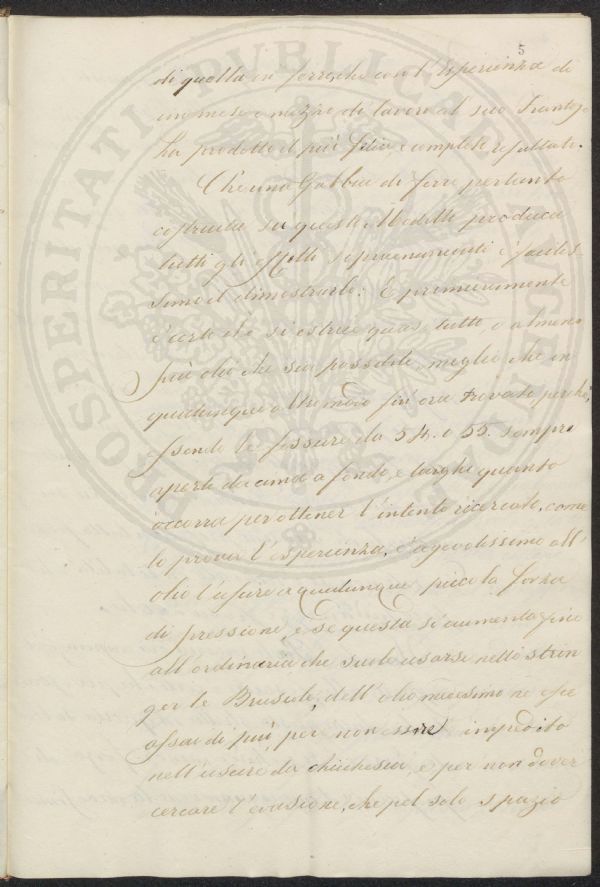 5
di quella in ferro, che con l'esperienza di
un mese e mezzo di lavoro al suo Frantojo
ha prodotto il più felice, e completo resultato.
Che una Gabbia di ferro pertanto
costruita su questo Modello produca
tutti gli effetti soprenunciati è faciliss
simo il dimostrarlo: E primieramente
è certo che si estrae quasi tutto, o almeno
più olio che sia possibile, meglio che in
qualunque altro modo fin'ora trovato perchè,
essendo le fessure da 54. o 55. sempre
aperte da cima a fondo, e larghe quanto
occorra per ottener l'intento ricercato, come
lo prova l'esperienza, è agevolissimo all'
olio l'uscire a qualunque piccola forza
di pressione, e se questa si aumenta fino
all'ordinaria che suole usarsi nello strin
ger le Bruscole, dell'olio medesimo ne esce
assai di più, per non essere impedito
nell'uscire da chicchesia, e per non dover
cercare l'evasione, che pel solo spazio
PROSPERITATI PUBLICAE AUGENDAE